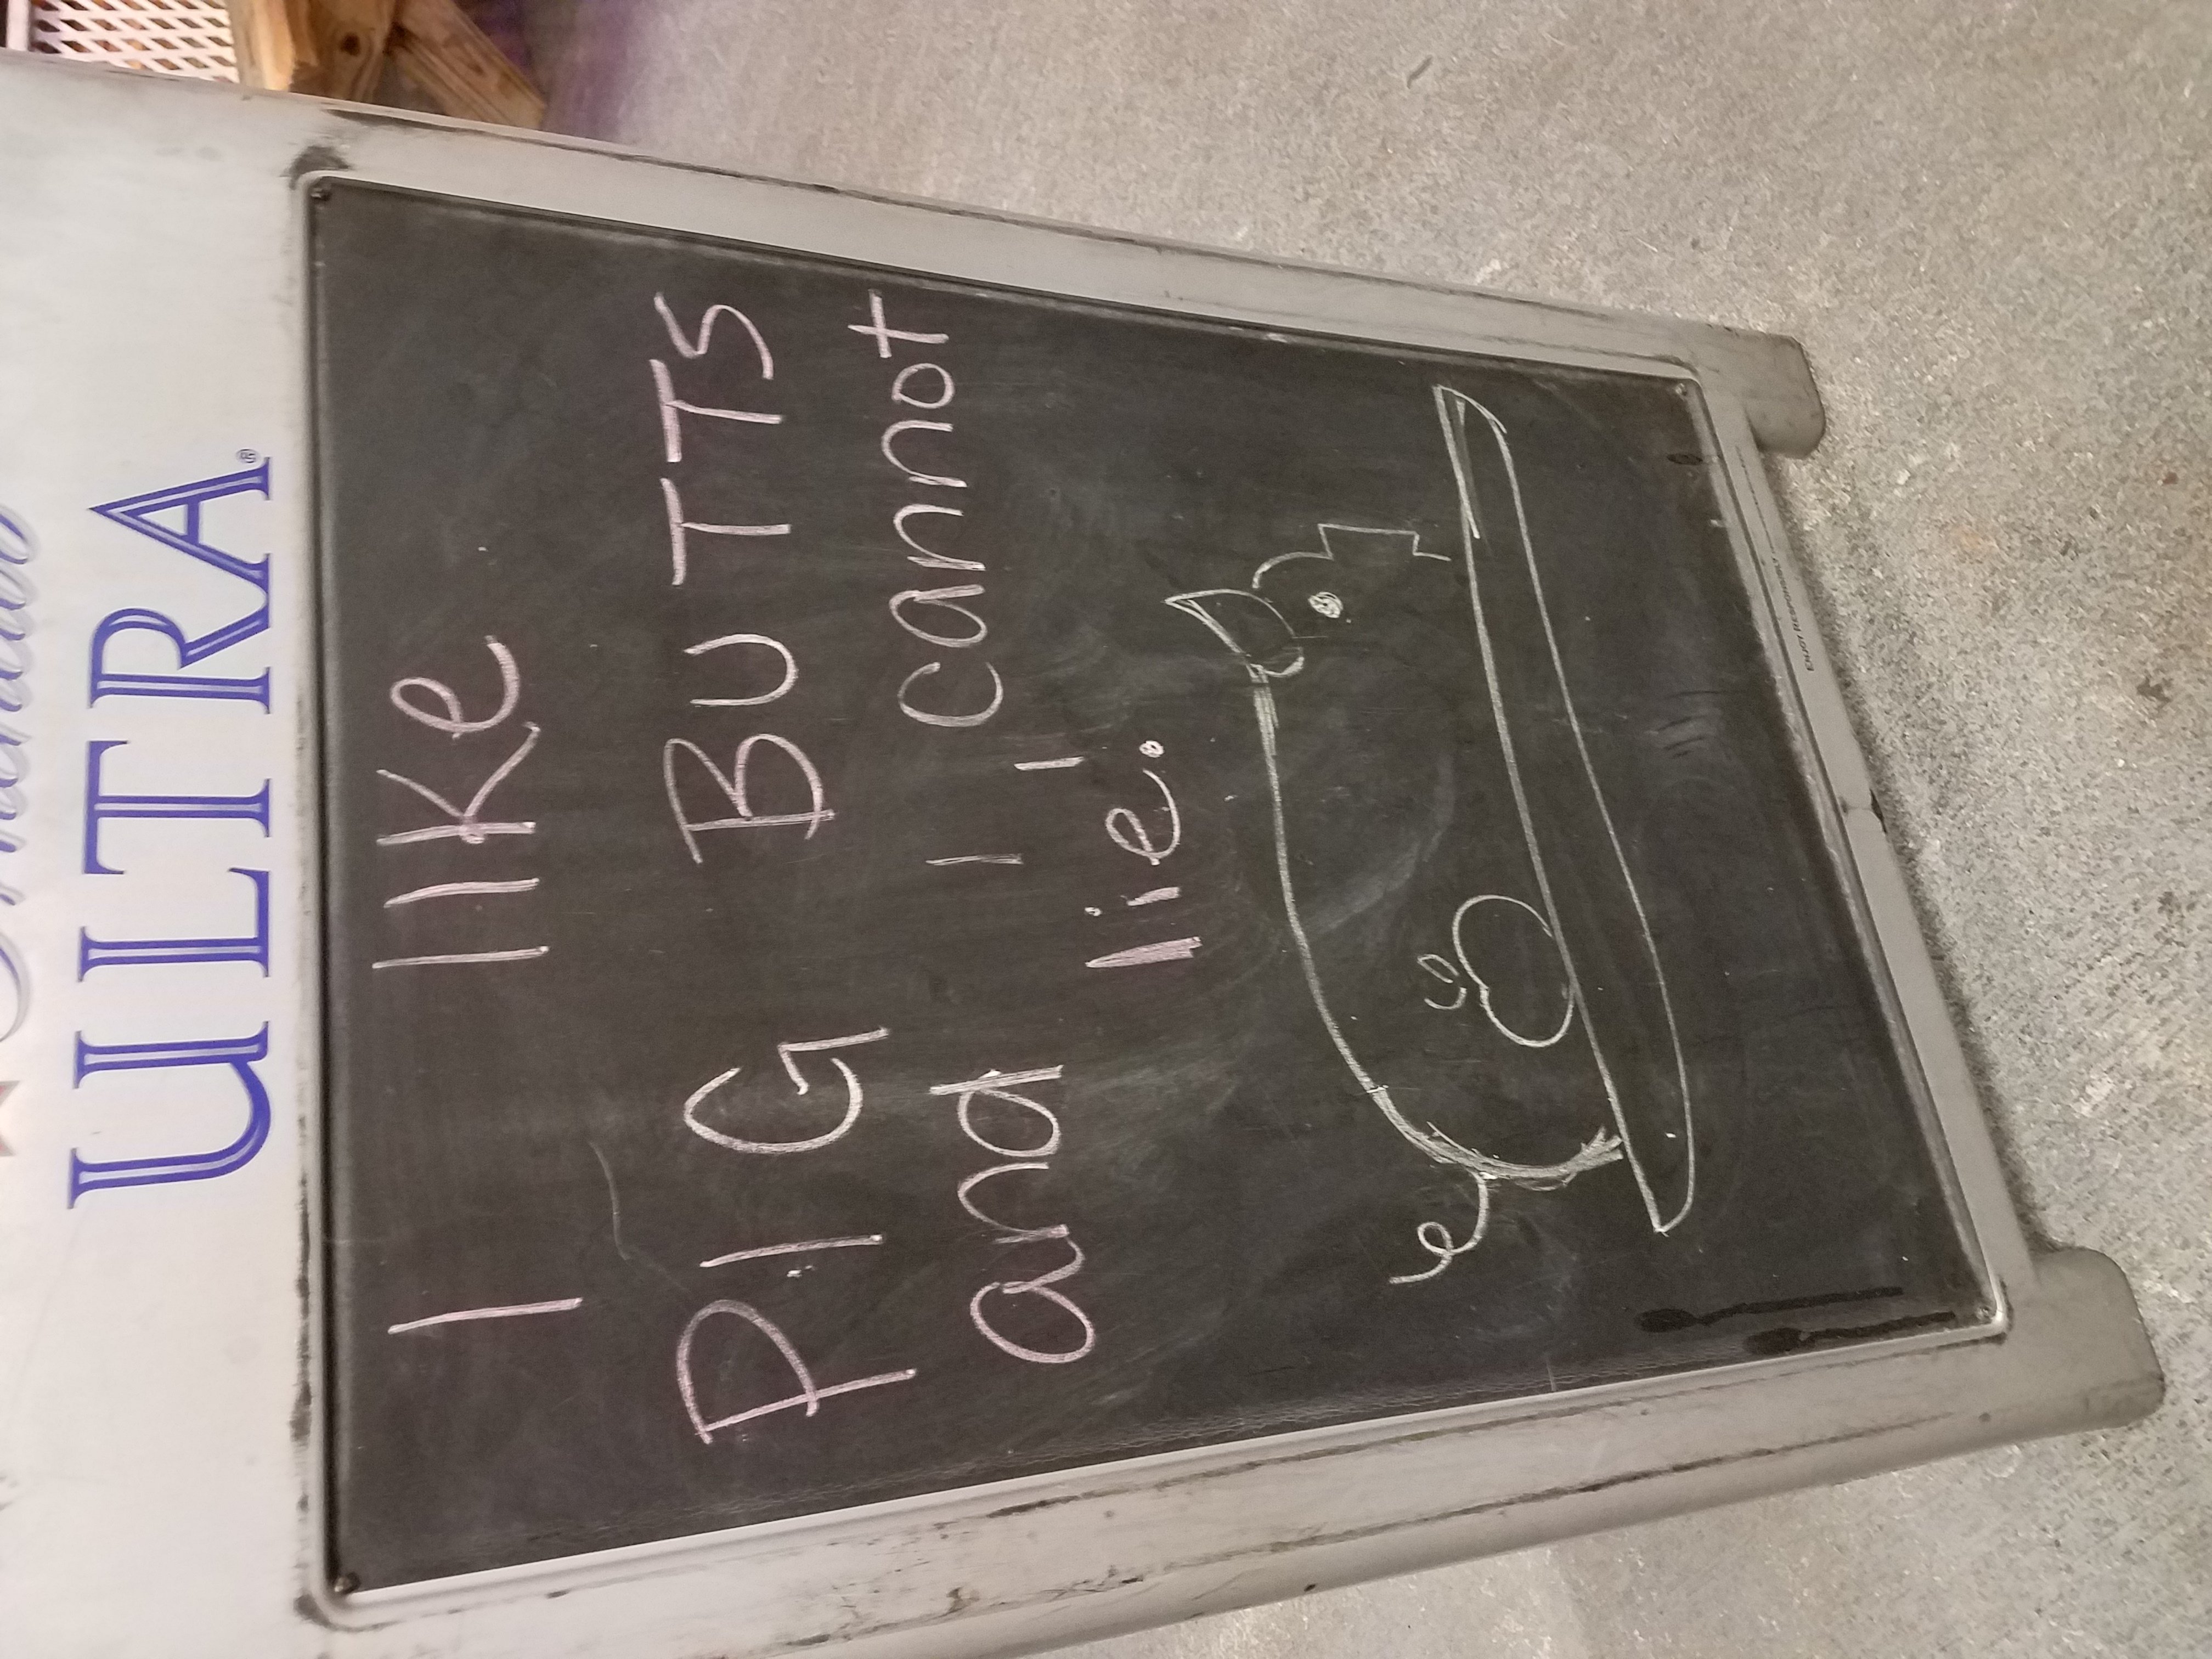 ULTRA®
I like
PIG BUTTS
and I cannot
lie.